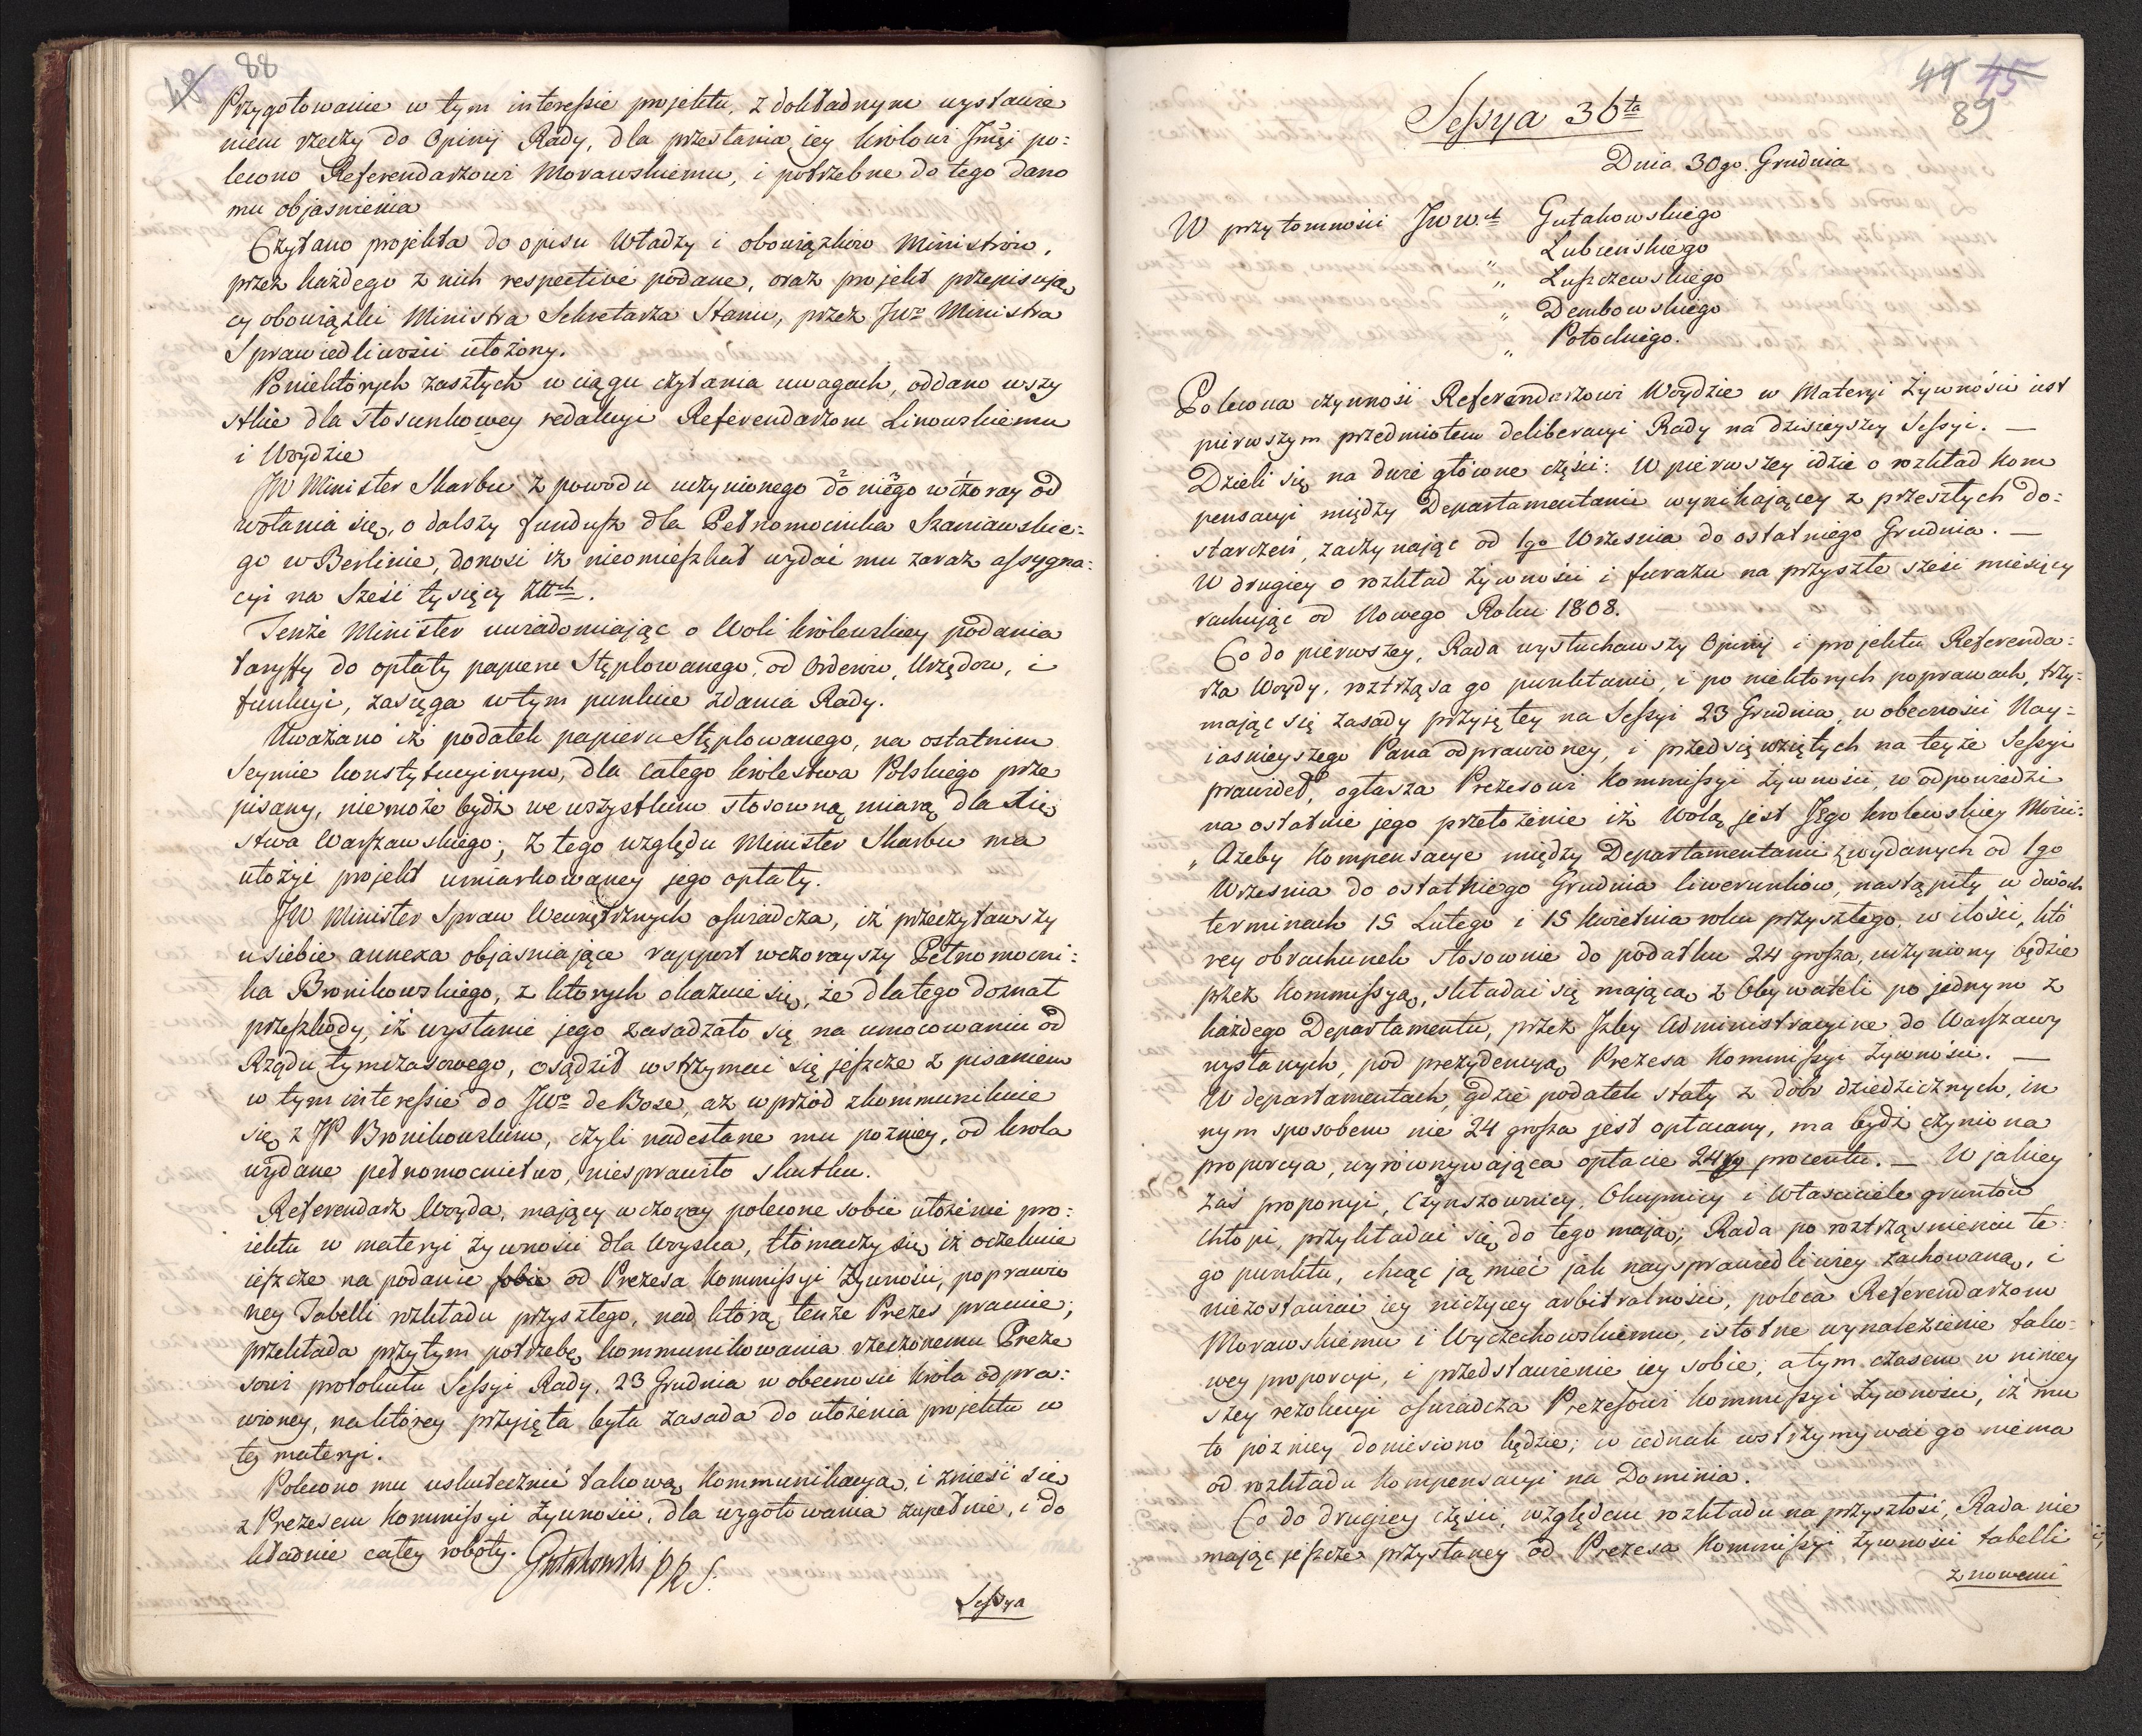 48 88
Przygotowanie w tym interessie projektu, z dokładnym wystawie
niem rzeczy do Opinij Rady, dla przesłania jey Królowi Jmći po:
lecono Referendarzowi Morawskiemu, i potrzebne do tego dano
mu objasnienia
Czytano projekta do opisu Władzy i obowiązków Ministrów,
przez każdego z nich respective podane, oraz projekt przepisują
cy obowiązki Ministra Sekretarza Stanu, przez JWo Ministra
Sprawiedliwości ułożony.
Poniektórych zaszłych w ciągu czytania uwagach, oddano wszy
stkie dla stosunkowey redakcyi Referendarzom Linowskiemu
i Woydzie
JW Minister Skarbu z powodu uczynionego do niego wczoray od
wołania się, o dalszy fundusz dla Pełnomocnika Szaniawskie:
go w Berlinie, donosi iż nieomieszkał wydać mu zaraz assygna:
cyi na Sześć tysięcy Złłch.
Tenże Minister uwiadomiając o Woli królewskiey podania
taryffy do opłaty papieru Stęplowanego, od Orderów, Urzędow, i
funkcyi, zasięga w tym punkcie zdania Rady.
Uważano iż podatek papieru Stęplowanego, na ostatnim
Seymie konstytucyinym, dla całego królestwa Polskiego prze
pisany, niemoże bydź we wszystkim stosowną miarą dla Xię
stwa Warszawskiego; z tego względu Minister Skarbu ma
ułożyć projekt umiarkowaney jego opłaty.
JW Minister Spraw Wewnętrznych oświadcza, iż przeczytawszy
u siebie annexa objasniające rapport wczorayszy Pełnomocni:
ka Bronikowskiego, z ktorych okazuie się, że dlatego doznał
przeszkody, iż wysłanie jego zasadzało się na umocowaniu od
Rządu tymczasowego, osądził wstrzymać się jeszcze z pisaniem
w tym interessie do JWo de Bose, aż wprzód zkommunikuie
się z JP Bronikowskim, czyli nadesłane mu pozniey, od króla
wydane pełnomocnictwo, niesprawiło skutku.
Referendarz Woyda, mający wczoray polecone sobie ułożenie pro:
iektu w materyi żywności dla Woyska, tłomaczy się iż oczekuie
ieszcze na podanie sobie od Prezesa Kommissyi Żywności, poprawio
ney Tabelli rozkładu przyszłego, nad którą tenże Prezes pracuie;
przekłada przytym potrzebę kommunikowania rzeczonemu Preze
sowi protokułu Sessyi Rady, 23 Grudnia w obecności króla odpra:
wioney, na którey przyięta była zasada do ułożenia projektu w
tey materyi.
Polecono mu uskutecznić takową kommunikacyą, i znieść się
z Prezesem Kommissyi żywności, dla uzgotowania zupełnie, i do
kładnie całey roboty. Gutakowski PRS.
Sessya
49 45
89
Sessya 36ta
Dnia 30go Grudnia
W przytomności JWWch Gutakowskiego
Lubienskiego
„ Łuszczewskiego
„ Dembowskiego
„ Potockiego.
Polecona czynność Referendarzowi Woydzie w Materyi Żywności iest
pierwszym przedmiotem deliberacyi Rady na dzisieyszey Sessyi. —
Dzieli się na dwie główne części: W pierwszey idzie o rozkład kom
pensacyi między Departamentami wynikającey z przeszłych do:
starczeń, zaczynając od 1go Wrzesnia do ostatniego Grudnia. —
W drugiey o rozkład żywności i furażu na przyszłe sześć miesięcy
rachując od Nowego Roku 1808.
Co do pierwszey, Rada wysłuchawszy Opinij i projektu Referenda:
rza Woydy, roztrząsa go punktami, i po niektorych poprawach, trzy:
mając się zasady przyjętey na Sessyi 23 Grudnia, w obecności Nay:
iasnieyszego Pana odprawioney, i przedsięwziętych na teyże Sessyi
prawideł, ogłasza Prezesowi Kommissyi żywności, w odpowiedzi
na ostatnie jego przełożenie iż Wolą jest Jego królewskiey Mości:
„ Ażeby Kompensacye między Departamentami z wydanych od 1go
Wrzesnia do ostatniego Grudnia liwerunków, nastąpiły w dwóch
terminach 15 Lutego i 15 Kwietnia roku przyszłego, w ilości, któ
rey obrachunek stosownie do podatku 24 grosza, uczyniony będzie
przez Kommissyą, składać się mającą z Obywateli po jednym z
każdego Departamentu, przez Izby Administracyine do Warszawy
wysłanych, pod prezydencyą Prezesa Kommissyi żywności. —
W departamentach, gdzie podatek stały z dóbr dziedzicznych, in
nym sposobem nie 24 grosza jest opłacany, ma bydź czyniona
proporcya, wyrównywająca opłacie 24go procentu. — W jakiey
zaś proporcyi, Czynszownicy, Okupnicy i Właściciele gruntów
chłopi, przykładać się do tego mają; Rada po roztrząsnieniu te:
go punktu, chcąc ją mieć jak naysprawiedliwiey zachowaną, i
niezostawiać iey niczyiey arbitralności, poleca Referendarzom
Morawskiemu i Wyczechowskiemu, istotne wynalezienie tako:
wey proporcyi, i przedstawienie iey sobie; a tym czasem w niniey
szey rezolucyi oświadcza Prezesowi Kommissyi Żywności, iż mu
to pózniey doniesiono będzie; co iednak wstrzymywać go niema
od rozkładu Kompensacyi na Dominia.
Co do drugiey części, względem rozkładu na przyszłość, Rada nie
mając jeszcze przysłaney od Prezesa Kommissyi żywności tabelli
z nowemi